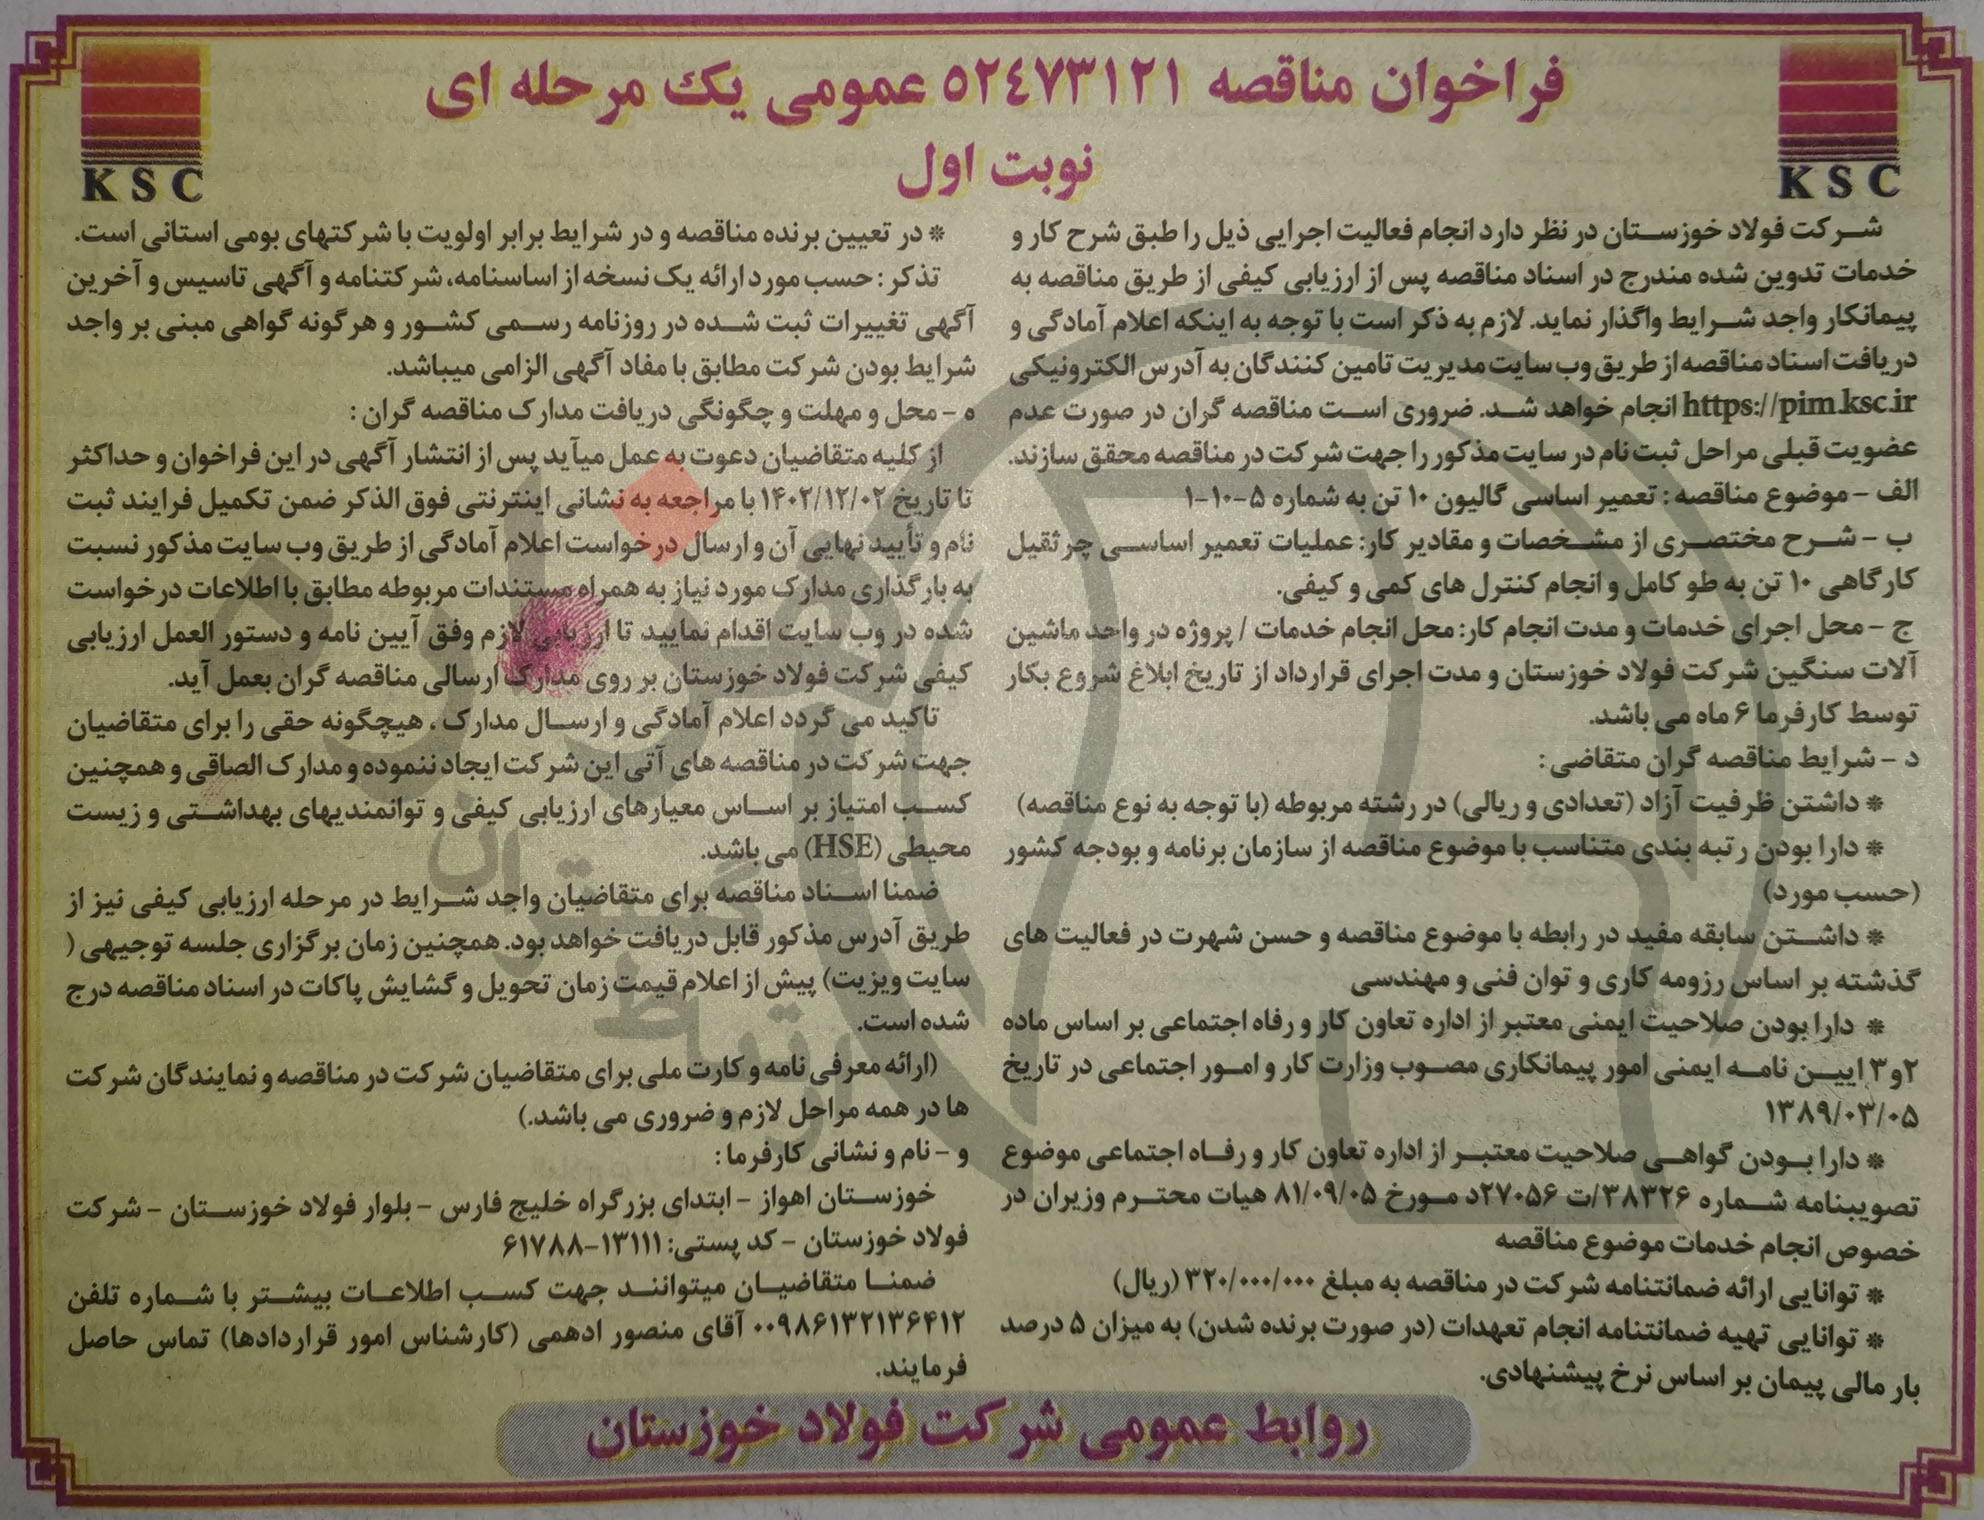 فراخوان مناقصه ٥٢٤٧٣١٢١ عمومی یک مرحله ای
نوبت اول
KSC
KSC
شرکت فولاد خوزستان در نظر دارد انجام فعالیت اجرایی ذیل را طبق شرح کار و
خدمات تدوین شده مندرج در اسناد مناقصه پس از ارزیابی کیفی از طریق مناقصه به
پیمانکار واجد شرایط واگذار نماید. لازم به ذکر است با توجه به اینکه اعلام آمادگی و
دریافت اسناد مناقصه از طریق وب سایت مدیریت تامین کنندگان به آدرس الکترونیکی
https://pim.ksc.ir انجام خواهد شد. ضروری است مناقصه گران در صورت عدم
عضویت قبلی مراحل ثبت نام در سایت مذکور را جهت شرکت در مناقصه محقق سازند.
الف - موضوع مناقصه : تعمیر اساسی گالیون ۱۰ تن به شماره ۵-۱۰-۱
ب - شرح مختصری از مشخصات و مقادیر کار: عملیات تعمیر اساسی جرثقیل
کارگاهی ۱۰ تن به طو کامل و انجام کنترل های کمی و کیفی.
ج - محل اجرای خدمات و مدت انجام کار: محل انجام خدمات / پروژه در واحد ماشین
آلات سنگین شرکت فولاد خوزستان و مدت اجرای قرارداد از تاریخ ابلاغ شروع بکار
توسط کارفرما ۶ ماه می باشد.
د - شرایط مناقصه گران متقاضی :
* داشتن ظرفیت آزاد (تعدادی و ریالی) در رشته مربوطه (با توجه به نوع مناقصه)
* دارا بودن رتبه بندی متناسب با موضوع مناقصه از سازمان برنامه و بودجه کشور
(حسب مورد)
* داشتن سابقه مفید در رابطه با موضوع مناقصه و حسن شهرت در فعالیت های
گذشته بر اساس رزومه کاری و توان فنی و مهندسی
* دارا بودن صلاحیت ایمنی معتبر از اداره تعاون کار و رفاه اجتماعی بر اساس ماده
۲و۳ ایین نامه ایمنی امور پیمانکاری مصوب وزارت کار و امور اجتماعی در تاریخ
۱۳۸۹/۰۳/۰۵
* دارا بودن گواهی صلاحیت معتبر از اداره تعاون کار و رفاه اجتماعی موضوع
تصویبنامه شماره ۳۸۳۲۶/ت ۲۷۰۵۶د مورخ ۸۱/۰۹/۰۵ هیات محترم وزیران در
خصوص انجام خدمات موضوع مناقصه
* توانایی ارائه ضمانتنامه شرکت در مناقصه به مبلغ ۳۲۰/۰۰۰/۰۰۰ (ریال)
* توانایی تهیه ضمانتنامه انجام تعهدات (در صورت برنده شدن) به میزان ۵ درصد
بار مالی پیمان بر اساس نرخ پیشنهادی.
* در تعیین برنده مناقصه و در شرایط برابر اولویت با شرکتهای بومی استانی است.
تذکر : حسب مورد ارائه یک نسخه از اساسنامه، شرکتنامه و آگهی تاسیس و آخرین
آگهی تغییرات ثبت شده در روزنامه رسمی کشور و هرگونه گواهی مبنی بر واجد
شرایط بودن شرکت مطابق با مفاد آگهی الزامی میباشد.
ه - محل و مهلت و چگونگی دریافت مدارک مناقصه گران :
از کلیه متقاضیان دعوت به عمل میآید پس از انتشار آگهی در این فراخوان و حداکثر
تا تاریخ ۱۴۰۲/۱۲/۰۲ با مراجعه به نشانی اینترنتی فوق الذکر ضمن تکمیل فرایند ثبت
نام و تأیید نهایی آن و ارسال درخواست اعلام آمادگی از طریق وب سایت مذکور نسبت
به بارگذاری مدارک مورد نیاز به همراه مستندات مربوطه مطابق با اطلاعات درخواست
شده در وب سایت اقدام نمایید تا ارزیابی لازم وفق آیین نامه و دستور العمل ارزیابی
کیفی شرکت فولاد خوزستان بر روی مدارک ارسالی مناقصه گران بعمل آید.
تاکید می گردد اعلام آمادگی و ارسال مدارک ، هیچگونه حقی را برای متقاضیان
جهت شرکت در مناقصه های آتی این شرکت ایجاد ننموده و مدارک الصاقی و همچنین
کسب امتیاز بر اساس معیارهای ارزیابی کیفی و توانمندیهای بهداشتی و زیست
محیطی (HSE) می باشد.
ضمنا اسناد مناقصه برای متقاضیان واجد شرایط در مرحله ارزیابی کیفی نیز از
طریق آدرس مذکور قابل دریافت خواهد بود. همچنین زمان برگزاری جلسه توجیهی (
سایت ویزیت) پیش از اعلام قیمت زمان تحویل و گشایش پاکات در اسناد مناقصه درج
شده است.
(ارائه معرفی نامه و کارت ملی برای متقاضیان شرکت در مناقصه و نمایندگان شرکت
ها در همه مراحل لازم و ضروری می باشد.)
و - نام و نشانی کارفرما :
خوزستان اهواز - ابتدای بزرگراه خلیج فارس - بلوار فولاد خوزستان - شرکت
فولاد خوزستان - کد پستی: ۱۳۱۱۱-۶۱۷۸۸
ضمنا متقاضیان میتوانند جهت کسب اطلاعات بیشتر با شماره تلفن
۰۰۹۸۶۱۳۲۱۳۶۴۱۲ آقای منصور ادهمی (کارشناس امور قراردادها) تماس حاصل
فرمایند.
روابط عمومی شرکت فولاد خوزستان